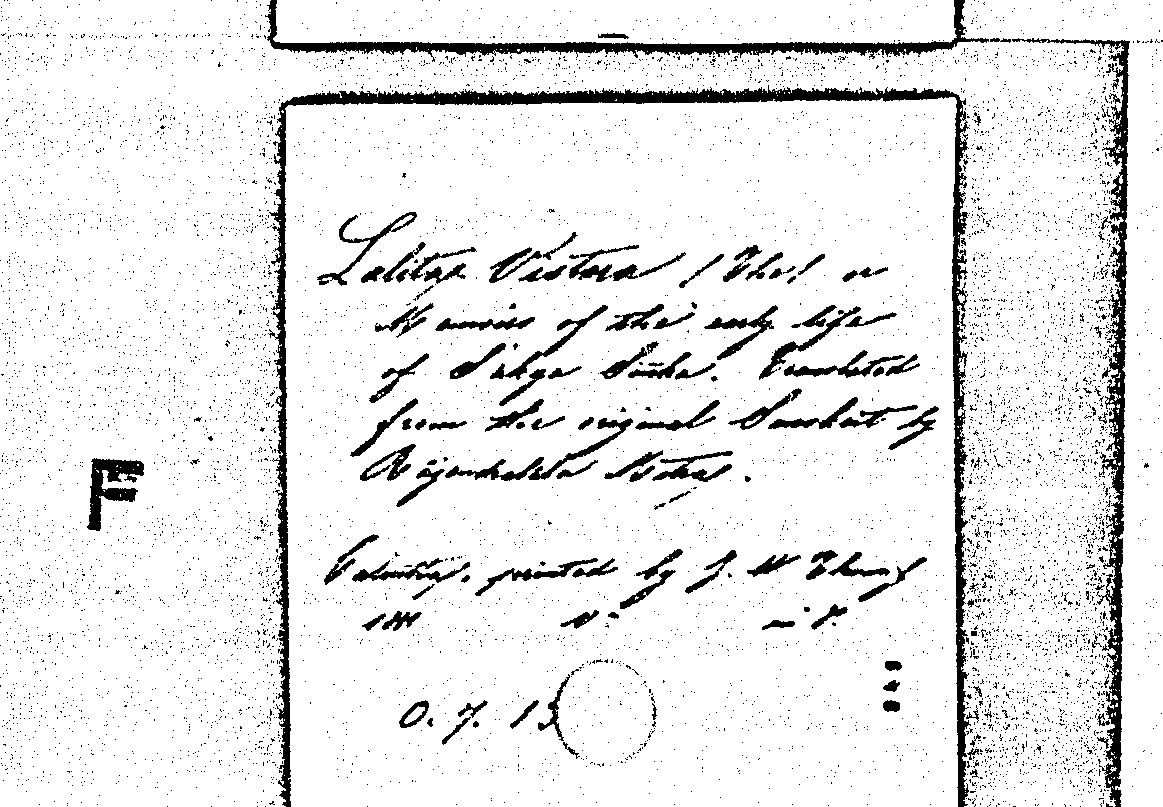 Lalita Vistara (The) or
Memoirs of the early life
of S'akya Siñha. Translated
from the original Sanskrit by
Rájendralála Mitra.
Calcutta, printed by J. W Thomas
in 8.
O. 7. 13
F